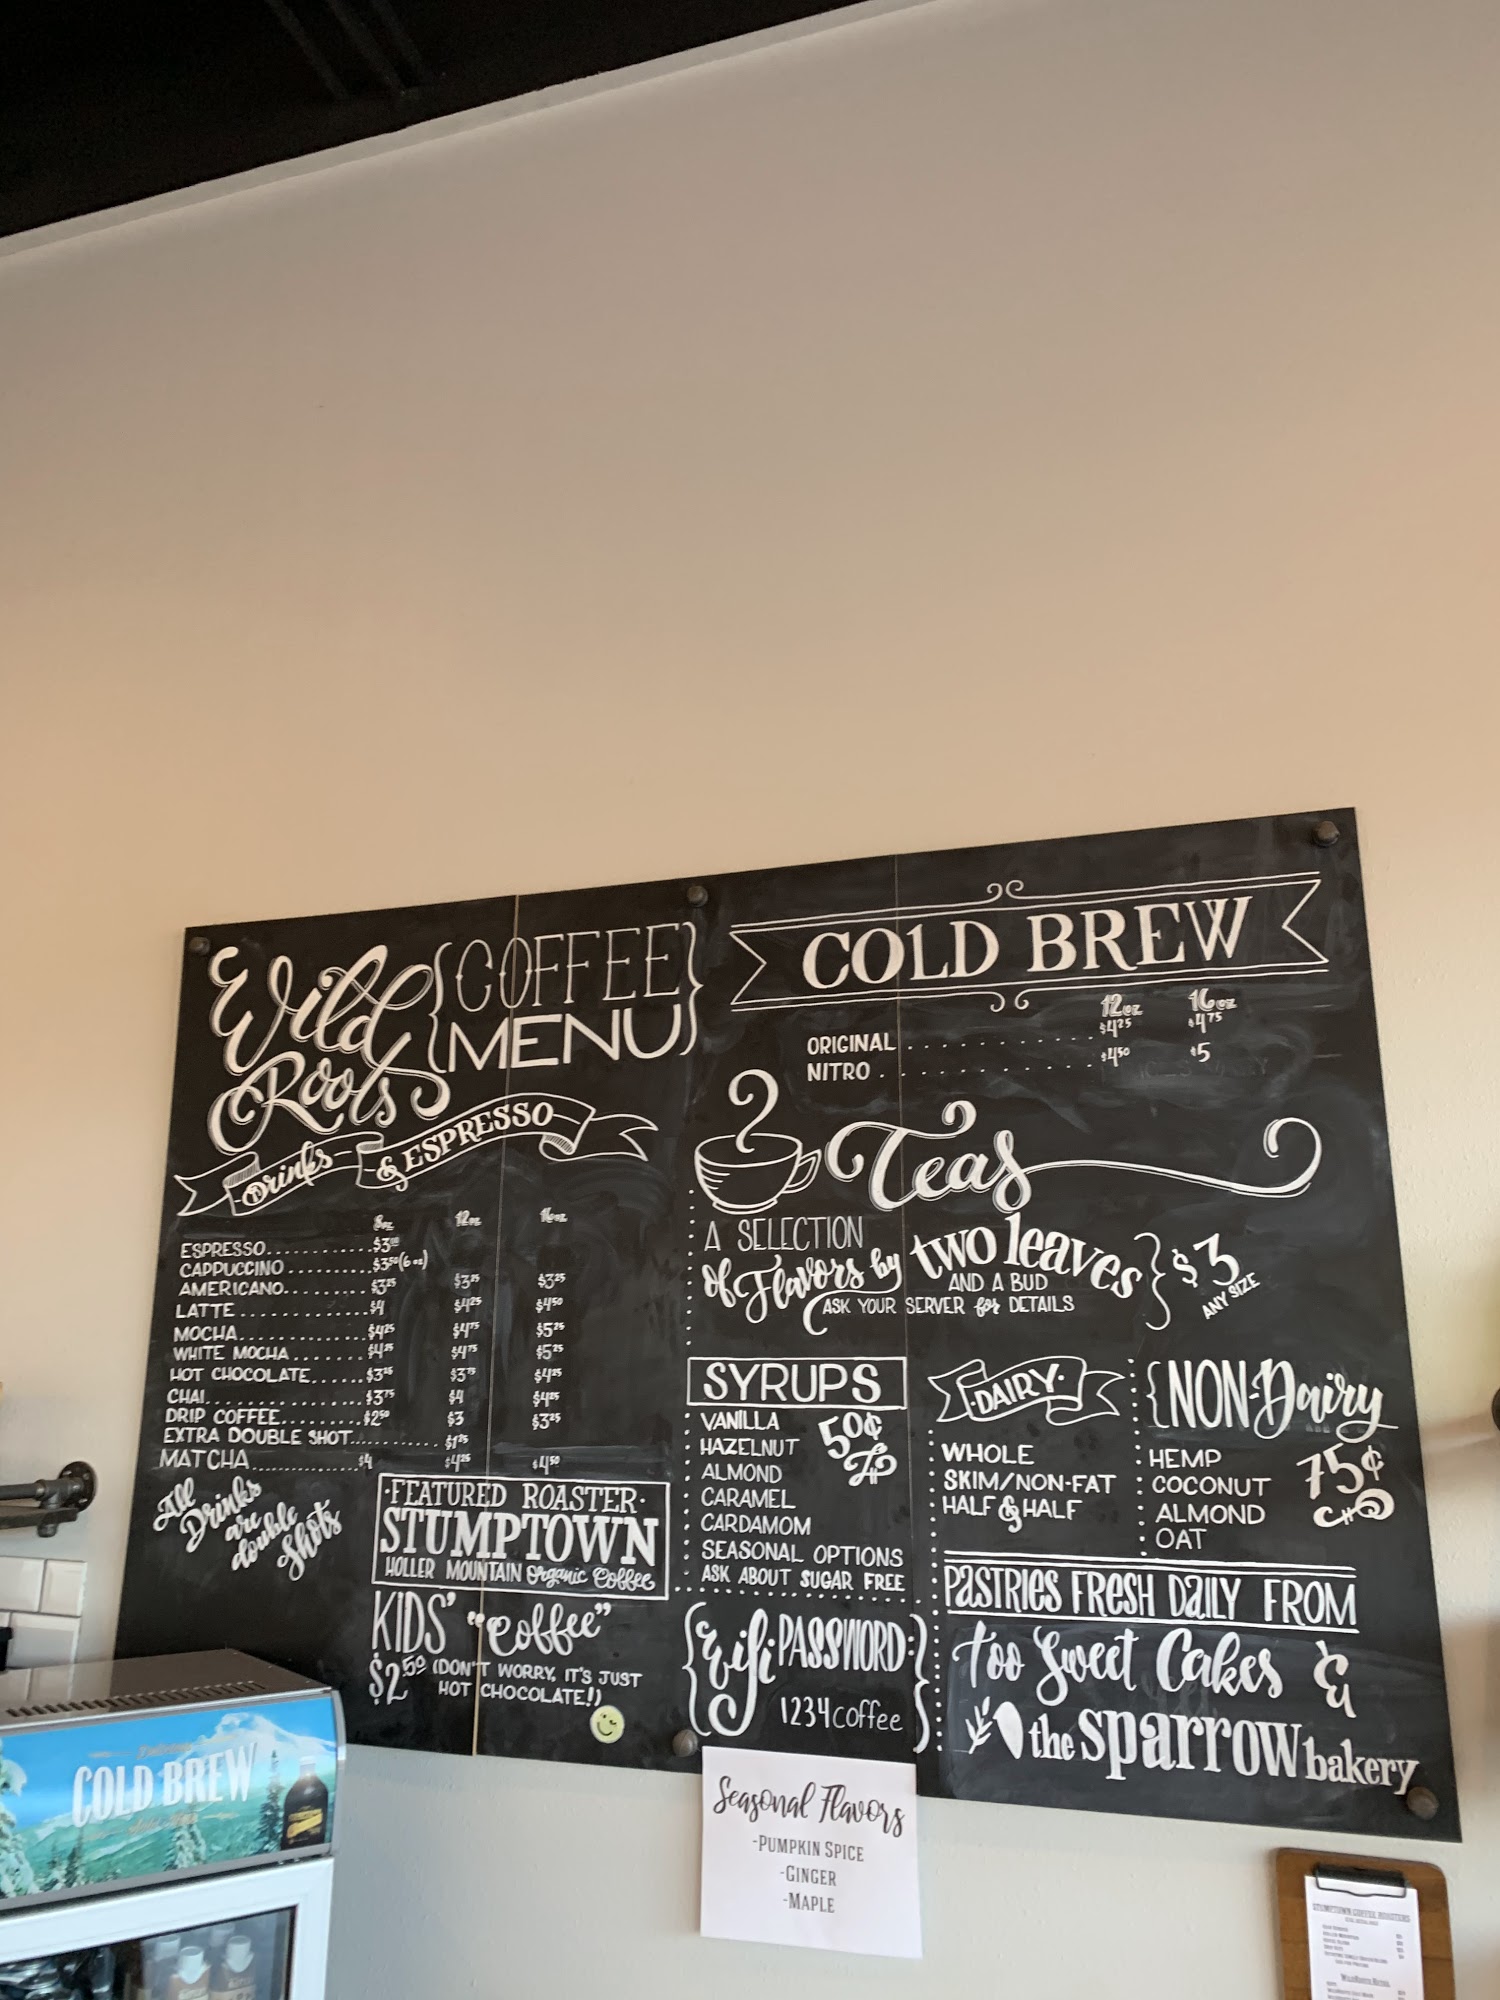 Wild Roots
{COFFEE MENU}
Drinks & ESPRESSO
8oz 12oz 16oz
ESPRESSO............$3⁰⁰
CAPPUCCINO..........$3⁵⁰(6oz)
AMERICANO.........$3²⁵ $3²⁵ $3²⁵
LATTE...............$4 $4²⁵ $4⁵⁰
MOCHA...............$4²⁵ $4⁷⁵ $5²⁵
WHITE MOCHA.......$4²⁵ $4⁷⁵ $5²⁵
HOT CHOCOLATE......$3²⁵ $3⁷⁵ $4²⁵
CHAI..................$3⁷⁵ $4 $4²⁵
DRIP COFFEE.........$2⁵⁰ $3 $3²⁵
EXTRA DOUBLE SHOT............$1²⁵
MATCHA..............$4 $4²⁵ $4⁵⁰
All Drinks are double shots
·FEATURED ROASTER·
STUMPTOWN
HOLLER MOUNTAIN Organic Coffee
KIDS' "Coffee"
$2⁵⁰ (DON'T WORRY, IT'S JUST
HOT CHOCOLATE!)
COLD BREW
12oz 16oz
ORIGINAL.............$4²⁵ $4⁷⁵
NITRO...............$4⁵⁰ $5
Teas
A SELECTION
of Flavors by two leaves
AND A BUD
ASK YOUR SERVER for DETAILS
} $3
ANY SIZE
SYRUPS
50¢
VANILLA
HAZELNUT
ALMOND
CARAMEL
CARDAMOM
SEASONAL OPTIONS
ASK ABOUT SUGAR FREE
·DAIRY·
WHOLE
SKIM/NON-FAT
HALF & HALF
{NON-Dairy
75¢
HEMP
COCONUT
ALMOND
OAT
{Wifi PASSWORD:}
1234coffee
PASTRIES FRESH DAILY FROM
Too Sweet Cakes &
the sparrow bakery
Seasonal Flavors
-PUMPKIN SPICE
-GINGER
-MAPLE
COLD BREW
STUMPTOWN COFFEE ROASTERS